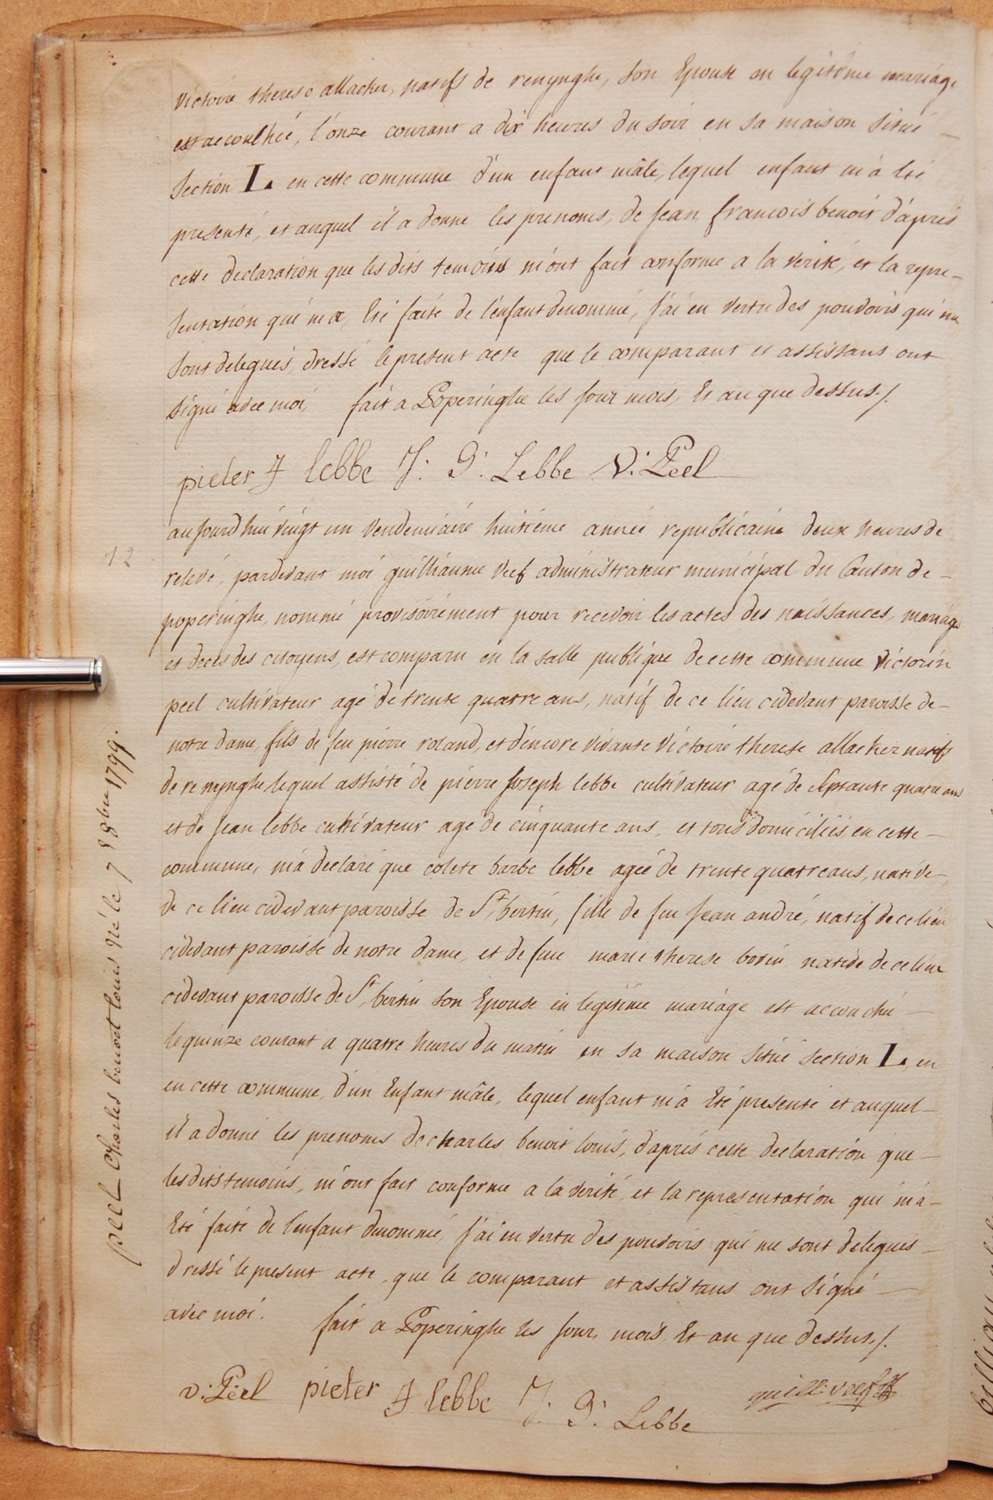 victoire therese allacker, natifs de renynghe, son Epouse en legitime mariage
est accouchée, l'onze courant a dix heures du soir en sa maison situé —
section L. en cette commune d'un enfant mâle, lequel enfant m'à été
presenté, et auquel il a donné les prenoms, de jean francois benoit d'áprés
cette declaration que les dits temoins m'ont fait conforme a la verité, et la repre-
sentation qui m'a été faite de l'enfant denommé, j'ai en vertu des pouvoirs qui me
sont delegués dressé le present acte que le comparant et assistans ont
signé avec moi, fait a Poperinghe les jour mois, Et an que dessus./.
pieter J lebbe J: D: Lebbe V: Peel
12
aujourd'hui vingt un Vendemiaire huitiéme année republicaine deux heures de
relevé, pardevant moi guilliaume Verf administrateur municipal du Canton de —
poperinghe, nommé provisoirement pour recevoir les actes des naissances, mariage
et decés des citoyens, est comparu en la salle publique de cette commune Victorin
peel cultivateur agé de trente quatre ans, natif de ce lieu cidevant paroisse de —
notre dame, fils de feu pierre roland, et d'encore vivante Victoire therese allacker natif
de renynghe lequel assisté de pierre joseph lebbe cultivateur agé de septante quatre ans
et de jean lebbe cultivateur agé de cinquante ans, et tous domiciliés en cette —
commune, m'à declaré que colete barbe lebbe ageé de trente quatre ans, native —
de ce lieu cidevant paroisse de St bertin, fille de feu jean andré, natif de ce lieu
cidevant paroisse de notre dame, et de feue marie therese native de ce lieu
cidevant paroisse de St bertin son Epouse en legitime mariage est accouché —
le quinze courant a quatre heures du matin en sa maison situé section L. en
en cette commune, d'un Enfant mâle, lequel enfant m'a Eté presenté et auquel —
il a donné les prenoms de charles benoit louis, d'aprés cette declaration que —
les dits temoins, m'ont fait conforme a la verité, et la representation qui m'à —
Eté faite de l'enfant denommé, j'ai en vertu des pouvoirs qui me sont delegués —
dressé le present acte, que le comparant et assistans ont signé —
avec moi. fait a Poperinghe les jour, mois Et an que dessus./.
V: Peel pieter J lebbe J: D: Lebbe
peel Charles benoit louis né le 7 8bre 1799.